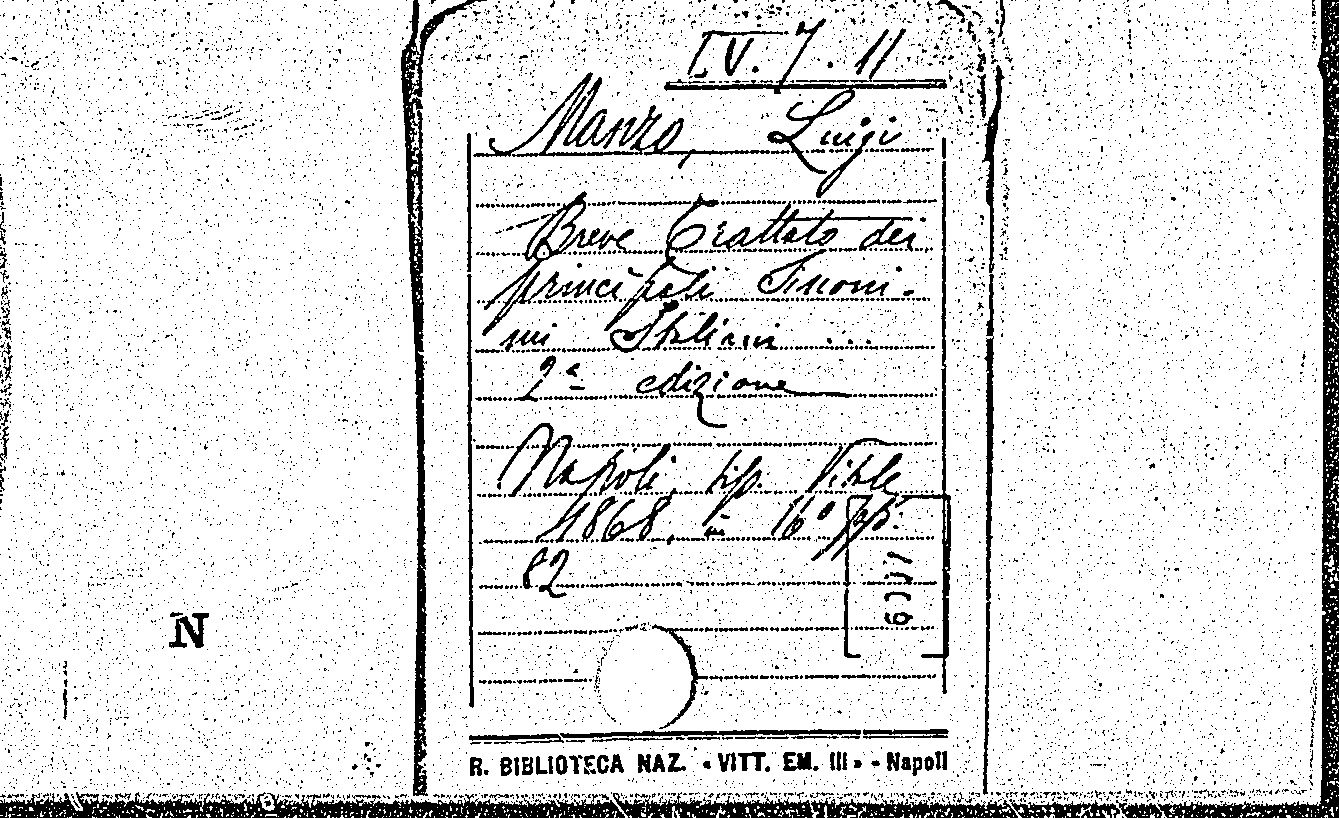 I.V. 7. 11
Manzo, Luigi
Breve Trattato dei
principali Sinoni-
mi Italiani ...
2ª edizione
Napoli, tip. Vitale
1868, in 16º pp.
82
N
R. BIBLIOTECA NAZ. « VITT. EM. III » - Napoli